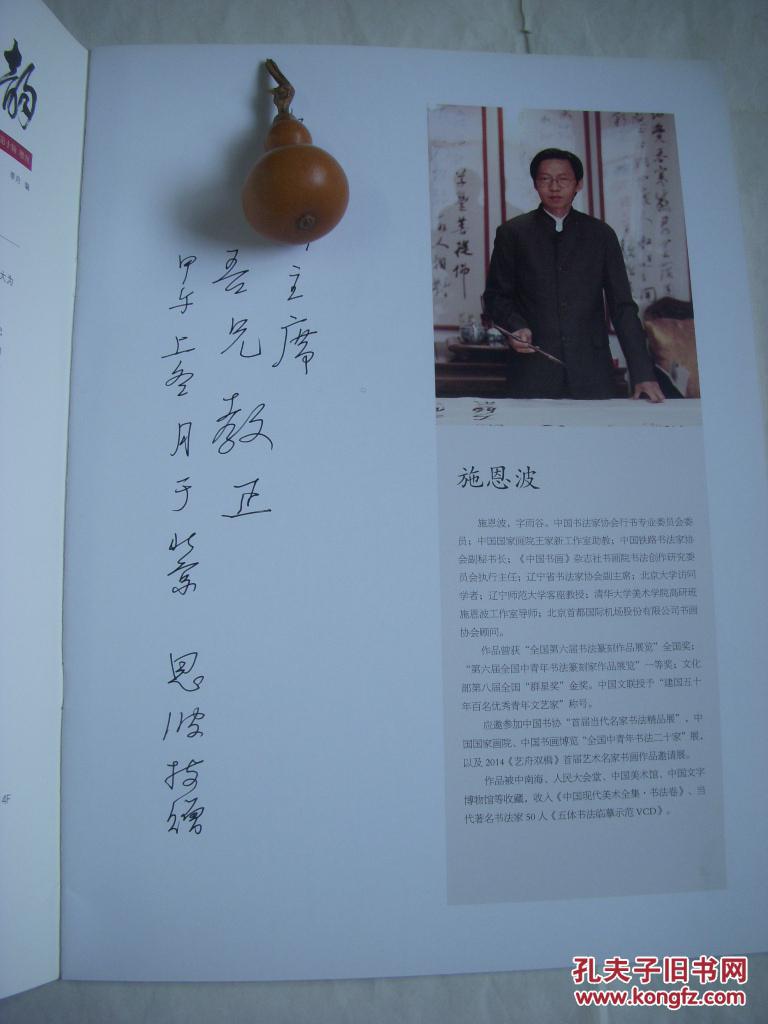 韵
季刊
大为
4F
主席
吾兄教正
甲午上冬月于北京 恩波持赠
施恩波
施恩波，字雨谷。中国书法家协会行书专业委员会委
员；中国国家画院王家新工作室助教；中国铁路书法家协
会副秘书长；《中国书画》杂志社书画院书法创作研究委
员会执行主任；辽宁省书法家协会副主席；北京大学访问
学者；辽宁师范大学客座教授；清华大学美术学院高研班
施恩波工作室导师；北京首都国际机场股份有限公司书画
协会顾问。
作品曾获“全国第六届书法篆刻作品展览”全国奖；
“第六届全国中青年书法篆刻家作品展览”一等奖；文化
部第八届全国“群星奖”金奖。中国文联授予“建国五十
年百名优秀青年文艺家”称号。
应邀参加中国书协“首届当代名家书法精品展”，中
国国家画院、中国书画博览“全国中青年书法二十家”展，
以及 2014《艺舟双楫》首届艺术名家书画作品邀请展。
作品被中南海、人民大会堂、中国美术馆、中国文字
博物馆等收藏，收入《中国现代美术全集·书法卷》、当
代著名书法家 50 人《五体书法临摹示范 VCD》。
孔夫子旧书网
www.kongfz.com